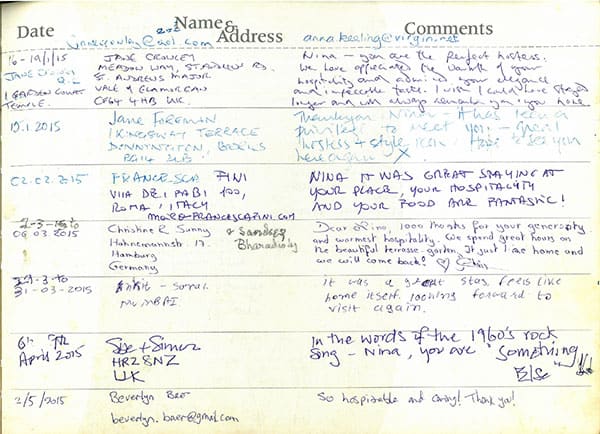 Date Name & Address Comments
@aol.com anna.keeling@virgin.net
16-19/1/15 JANE CROWLEY Nina - you are the perfect hostess.
MEADOW WAY, ST. ANDREWS RD. We have appreciated the warmth of your
ST. ANDREWS MAJOR hospitality and admired your elegance
1 GARDEN COURT VALE of GLAMORGAN and impeccable taste. I wish I could have stayed
TEMPLE. CF64 4HB UK. longer and will always remember you & your home
19.1.2015 Jane Foreman Thankyou Nina - it has been a
1 KINGSWAY TERRACE privilege to meet you - great
DONNINGTON, BERKS hostess + style icon. Hope to see you
RG14 here again X
02.02.2015 FRANCESCA FINI NINA IT WAS GREAT STAYING AT
VIA DEI PABI 100, YOUR PLACE, YOUR HOSPITALITY
ROMA, ITALY AND YOUR FOOD ARE FANTASTIC!
FRANCESCAFINI.COM
2-3-15 to
06.03.2015 Christine R. Sunny & Sandeep Bharadwaj Dear Nina, 1000 thanks for your generosity
Hahnemannstr. 17. and warmest hospitality. We spend great hours on
Hamburg the beautiful terrasse-garten. It just like at home and
Germany we will come back!
29-3 to
31-03-2015 Ankit - Sonal It was a great stay, feels like
MUMBAI home itself. Looking forward to
visit again.
6th - 9th
April 2015 Sue + Simon In the words of the 1960's rock
HR2 8NZ song - Nina, you are "Something
UK Else"!!
2/5/2015 Beverlyn Baer So hospitable and caring! Thank you!
beverlyn.baer@gmail.com